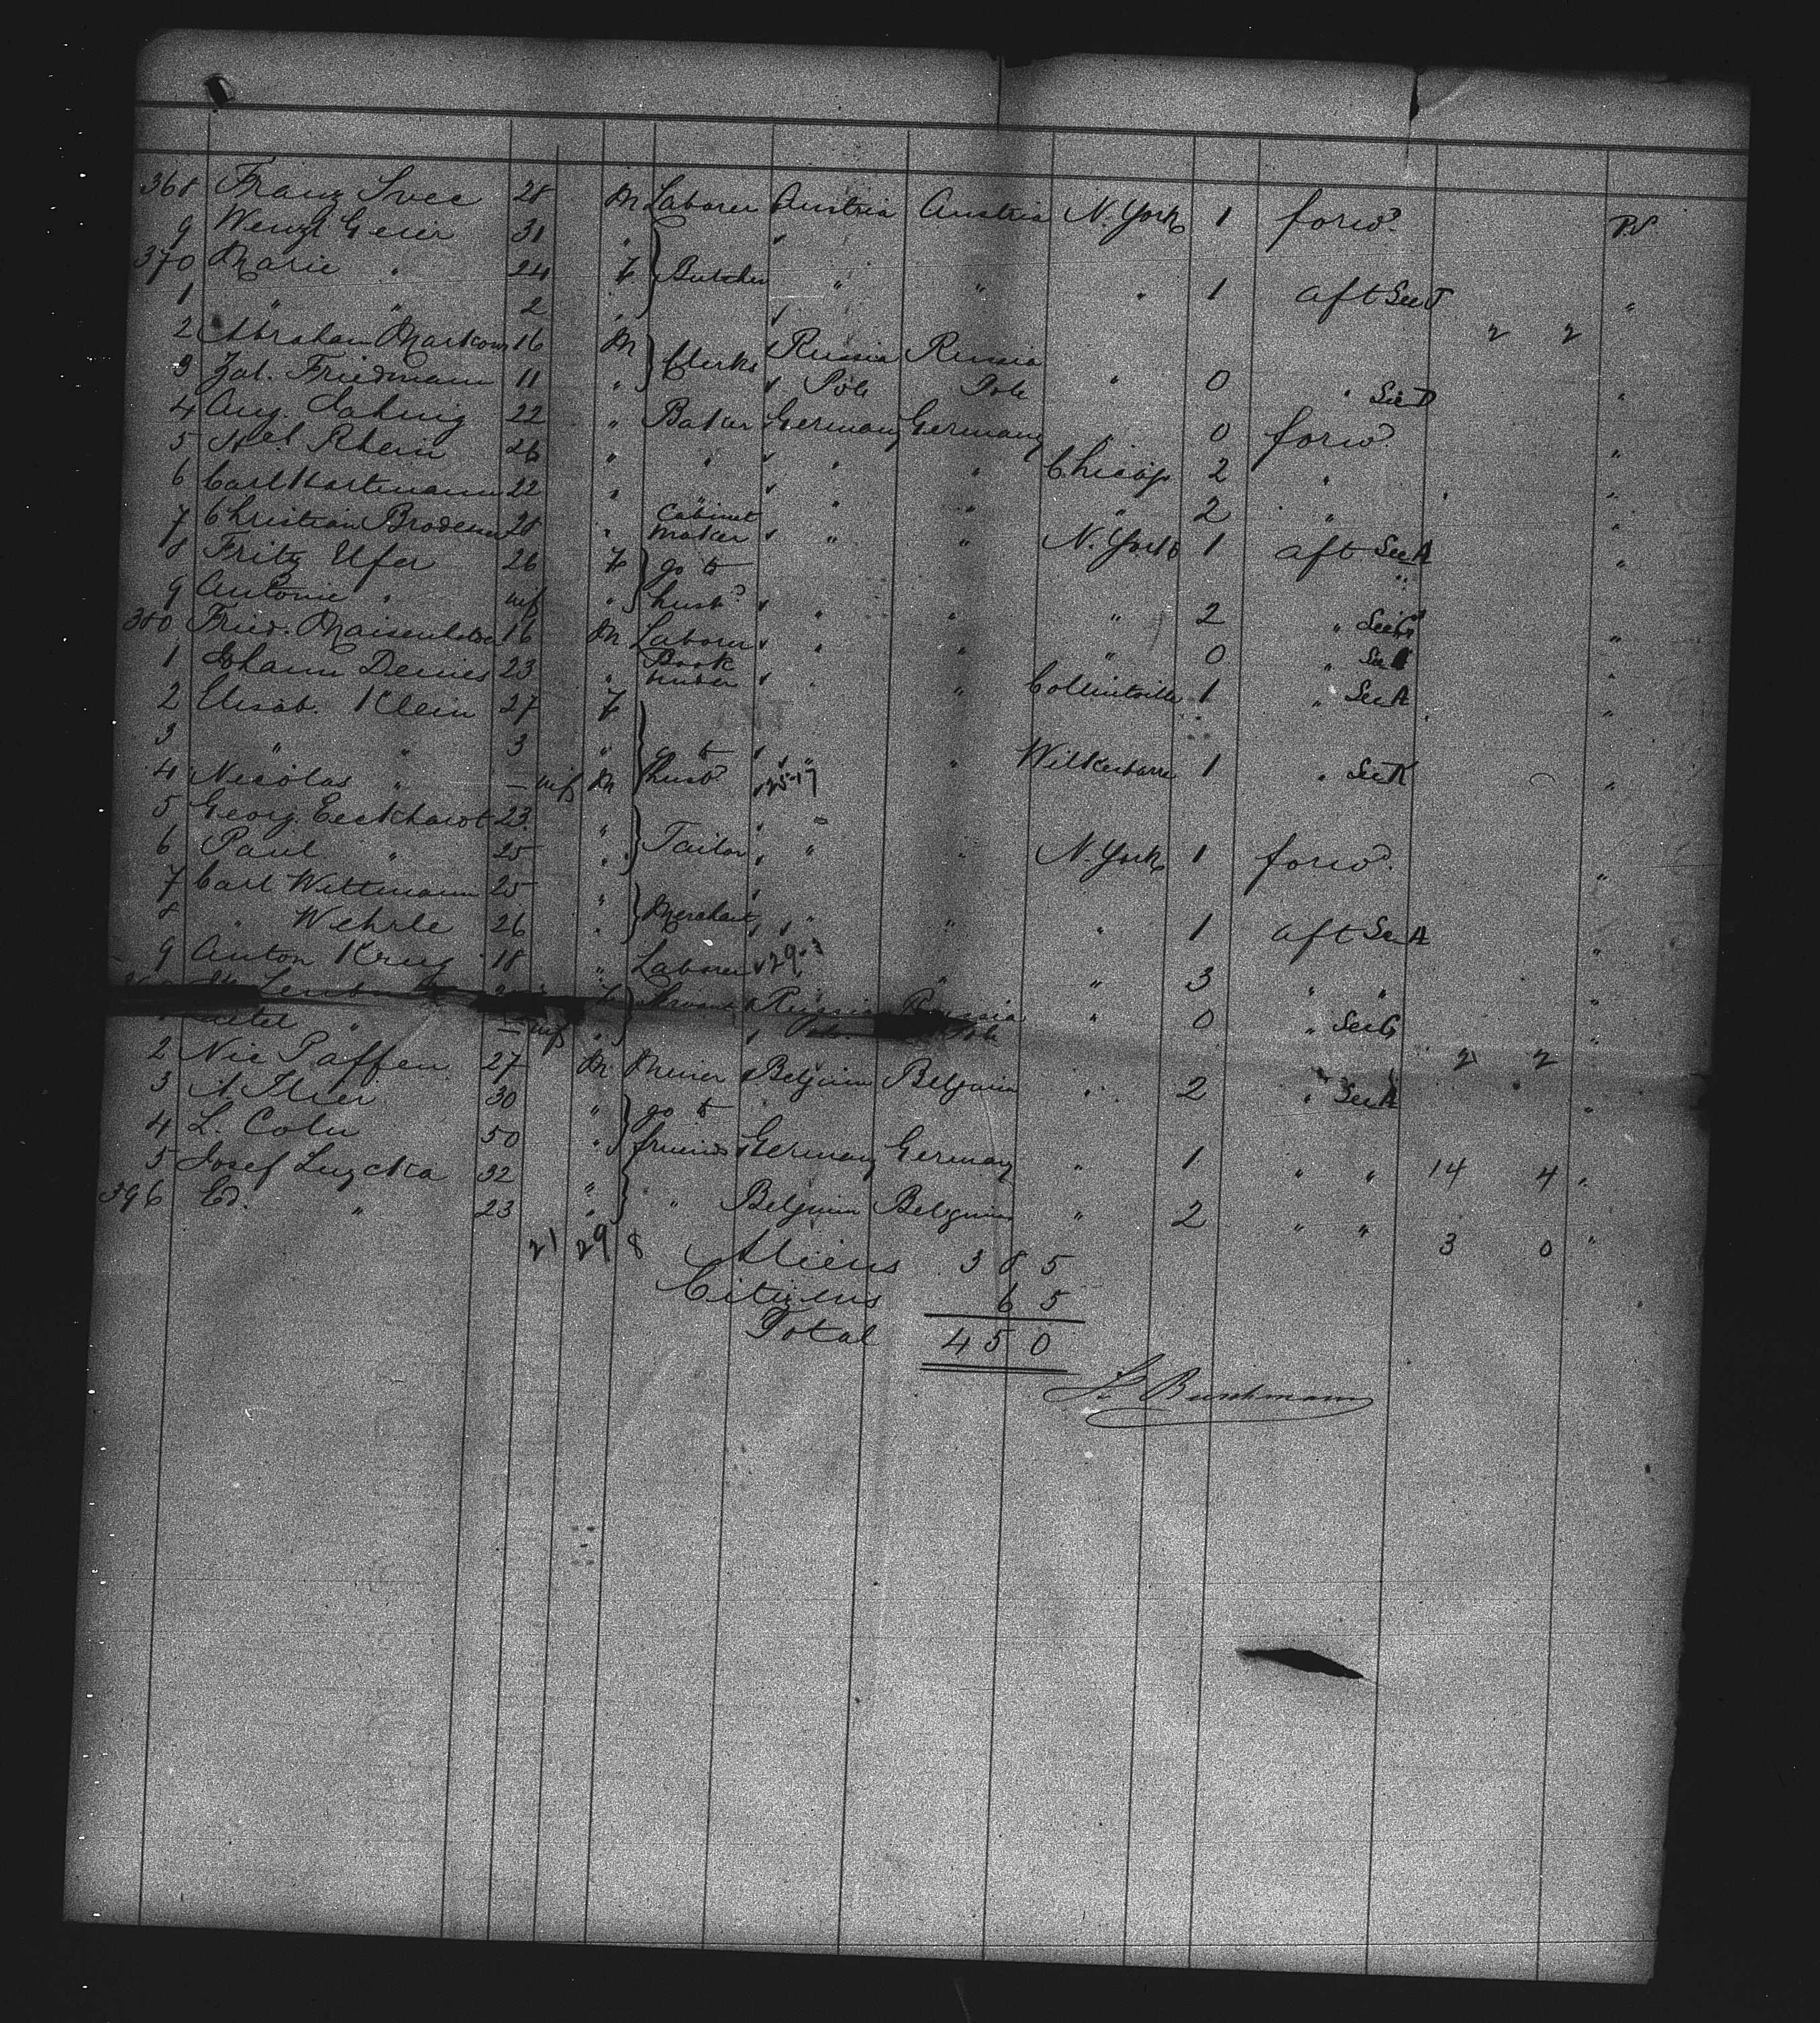 368 Franz Svec 28 M Laborer Austria Austria N. York 1 forw. W
9 Wenzl Geier 31 "
370 Marie " 24 F Butcher " " " 1 aft Sec T "
1 " " 2 " 2 2
2 Abraham 16 M Clerks Russia Russia
3 Friedmann 11 " Pole Pole " 0 " Sec D "
4 Aug. 22 " Baker Germany Germany " 0 forw. "
5 Rhein 26 " " " " Chicago 2 " "
6 Carl Hartmann 22 " " " " 2 " "
7 Christian 28 " Cabinet maker " " N. York 1 aft Sec A "
8 Fritz Ufer 26 F go to "
9 Antonie " inf " husb. " " " 2 " "
380 Fried. 16 M Laborer " " " 0 " Sec "
1 Johann 23 " Book binder " " Collinsville 1 " Sec A "
2 Elisab. Klein 27 F
3 " " 3 " go to "
4 Nicolas " - inf M husb 25-17 " Wilkesbarre 1 " Sec K "
5 Georg. Eeckhardt 23 " "
6 Paul " 25 " Tailor " " N. York 1 forw. "
7 Carl Wittmann 25 "
8 " Wehrle 26 " Merchant " " " 1 aft Sec A "
9 Anton Krug 18 " Laborer " " 3 " " "
Servant Russia Russia " 0 " Sec "
" - inf " Pole 2 2
2 Nic Paffen 27 M Miner Belgium Belgium " 2 " Sec A "
3 30 " go to
4 L. 50 " friends Germany Germany " 1 " " 14 4 "
5 Josef Luzcka 32 "
396 Ed. " 23 " " Belgium Belgium " 2 " " 3 0 "
21 29 8 Aliens 385
Citizens 65
Total 450
Buschmann